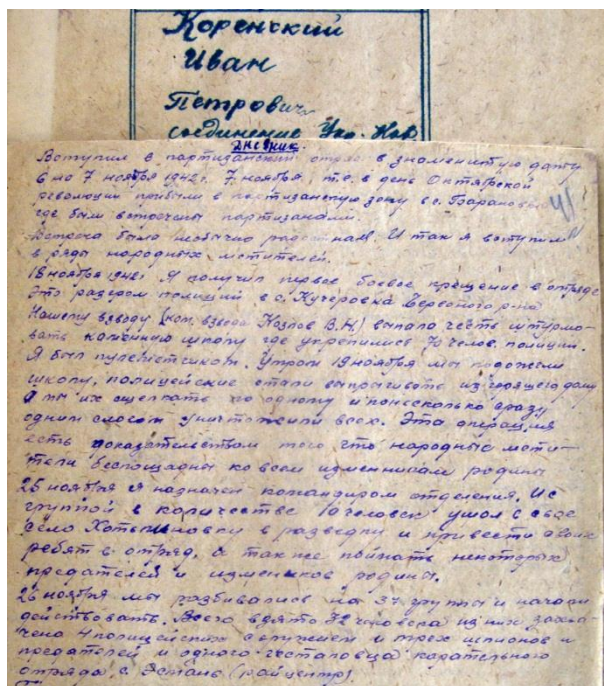 Коренский
Иван
Петрович
соединение Укр. Ков
дневник
Вступил в партизанский отряд в знаменитую дату
6 на 7 ноября 1942г. 7 ноября, т.е. в день Октябрской
революции прибыли в партизанскую зону в с. Барановку
где были встречены партизанами.
41
Встреча была необычно радостная. И так я вступил
в ряды народных мстителей.
18 ноября 1942г Я получил первое боевое крещение в отряде
Это разгром полиций в с. Кучеровка р-на
Нашему взводу (ком. взвода Козлов В.Н) выпала честь штурмо-
вать каменную школу где укрепились 70 челов. полиций.
Я был пулеметчиком. Утром 19 ноября мы подожгли
школу, полицейские стали выпрыгивать из горящего дому
а мы их щелкать по одному и понесколько сразу
одним словом уничтожили всех. Эта операция
есть доказательством того что народные мсти-
тели беспощадны ко всем изменникам родины
25 ноября я назначен командиром отделения. И с
группой в количестве 10 человек ушол в свое
село Хотыновку в разведку и привести своих
ребят в отряд, а так же поймать некоторых
предателей и изменников родины.
26 ноября мы разбивались на 3 группы и начали
действовать. Всего взято 32 человека из них захва-
чено 4 полицейских с оружием и трех шпионов и
предателей и одного гестаповца карательного
отряда, с. Эстань (райцентр).